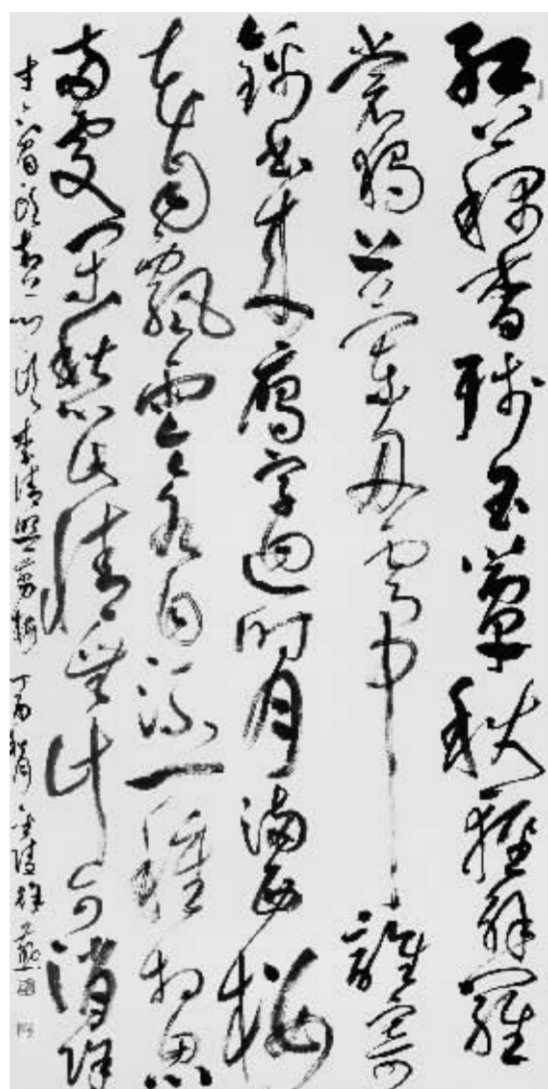 紅藕香残玉簟秋輕解羅
裳獨上蘭舟雲中誰寄
錦書来雁字回時月滿西樓
花自飄零水自流一種相思
兩處閑愁此情無計可消除
才下眉頭却上心頭李清照剪梅丁酉秋月金陵徐